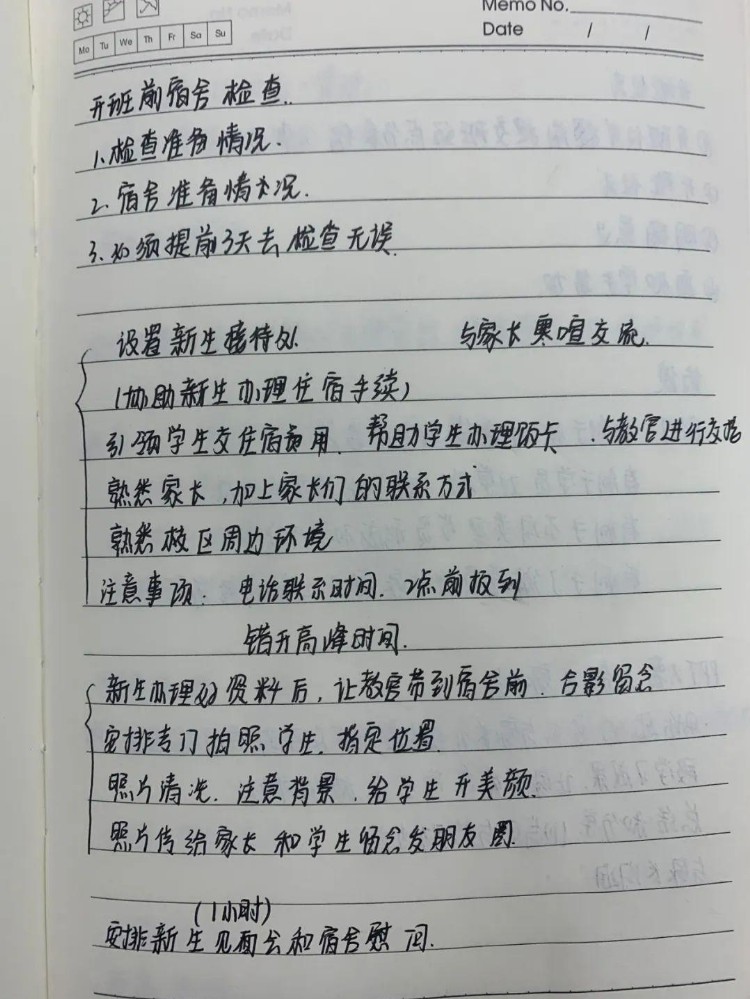 Memo No.
Mo Tu We Th Fr Sa Su
Date / /
开班前宿舍检查.
1.检查准备情况.
2.宿舍准备情况.
3.必须提前3天去检查无误.
设置新生接待处 与家长寒喧交流.
(协助新生办理住宿手续)
引领学生交住宿费用、帮助学生办理饭卡、与教官进行交接
熟悉家长,加上家长们的联系方式
熟悉校区周边环境
注意事项: 电话联系时间.2点前报到
错开高峰时间.
新生办理好资料后,让教官带到宿舍前、合影留念
安排专门拍照学生.指定位置.
照片清洗.注意背景、给学生开美颜.
照片传给家长和学生留念发朋友圈.
(1小时)
安排新生见面会和宿舍慰问.